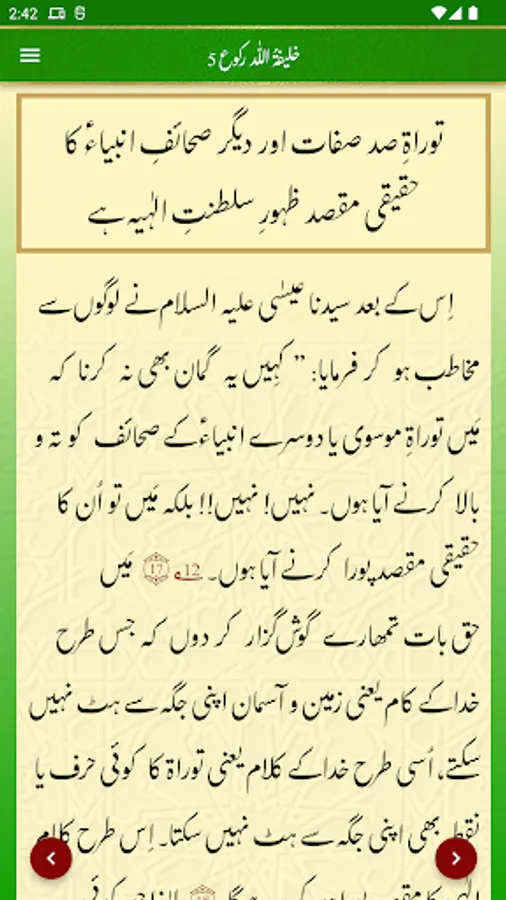 2:42
خلیفۃُ اللہ رکوع 5
توراۃِ صد صفات اور دیگر صحائفِ انبیاءؑ کا
حقیقی مقصد ظہورِ سلطنتِ الہٰیہ ہے
اِس کے بعد سیدنا عیسٰی علیہ السلام نے لوگوں سے
مخاطب ہو کر فرمایا: ” کہِیں یہ گمان بھی نہ کرنا کہ
مَیں توراۃِ موسوی یا دوسرے انبیاءؑ کے صحائف کو تہ و
بالا کرنے آیا ہوں۔ نہیں! نہیں!! بلکہ مَیں تو اُن کا
حقیقی مقصد پورا کرنے آیا ہوں۔ 12؎ 17 مَیں
حق بات تمھارے گوش‌گزار کر دوں کہ جس طرح
خدا کے کام یعنی زمین و آسمان اپنی جگہ سے ہٹ نہیں
سکتے، اُسی طرح خدا کے کلام یعنی توراۃ کا کوئی حرف یا
نقطہ بھی اپنی جگہ سے ہٹ نہیں سکتا۔ اِس طرح کلامِ